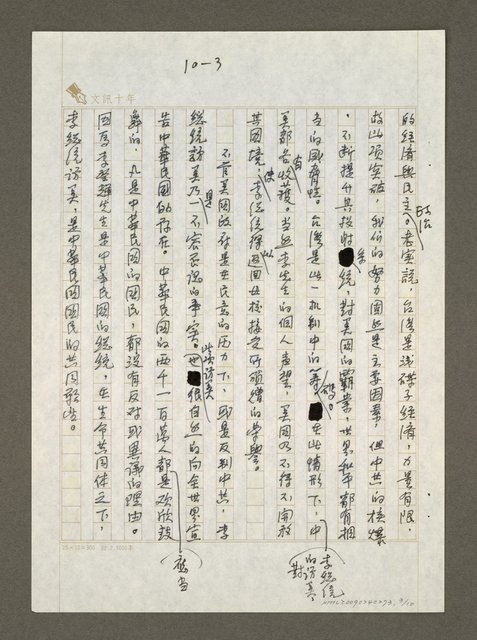 10-3
文訊十年
的經濟與民主。政治老實說，台灣是淺碟子經濟，力量有限，
故此項突破，我們的努力固然是主要因素，但中共的核爆
，不斷提升其投射系統，對美國的霸業，世界和平都有相
當的威脅。台灣是此一抗制中的籌碼。在此情形下，中
美都各有收穫。當然李先生的個人聲望，美國乃不得不開放
其國境，使李總統得以返回母校接受所頒贈的榮譽。
不管美國政府是在民意的壓力下，或是反制中共，李
總統訪美乃是一不容否認的事實，此次訪美也很自然的向全世界宣
告中華民國的存在。中華民國的兩千一百萬人都應當是欣欣鼓
舞的，凡是中華民國的國民，都沒有反對或異議的理由。
因為李登輝先生是中華民國的總統，在生命共同體之下，
李總統訪美，是中華民國國民的共同榮光。
李總統的訪美，對
25×12=300
NMTL20090240293, 3/10